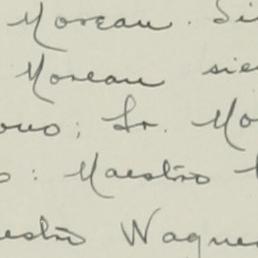 Moreau. Si
Moreau sie
ono; Sr. Mo
o: Maestro
estro Wagne